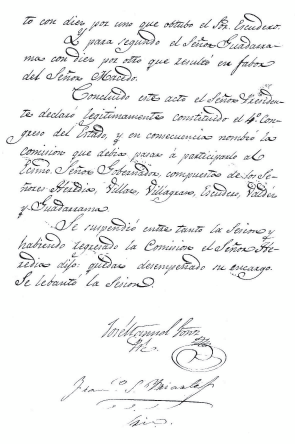 to con diez por uno que obtubo el Sor. Escudero.
Y para segundo el Señor Guadarra-
ma con diez por otro que resultó en fabor
del Señor Macedo.
Concluido este acto el Señor Presiden-
te declaró legitimamente constituido el 4º Con-
greso del Estado, y en consecuencia nombró la
comision que debia pasar á participarlo al
Exmo. Señor Gobernador, compuesta de los Se-
ñores Heredia, Villar, Villagran, Escudero, Valdés
y Guadarrama.
Se suspendió entre tanto la Sesion y
habiendo regresado la Comision el Señor He-
redia dijo: quedar desempeñado su encargo.
Se lebantó la Sesion
José Manuel